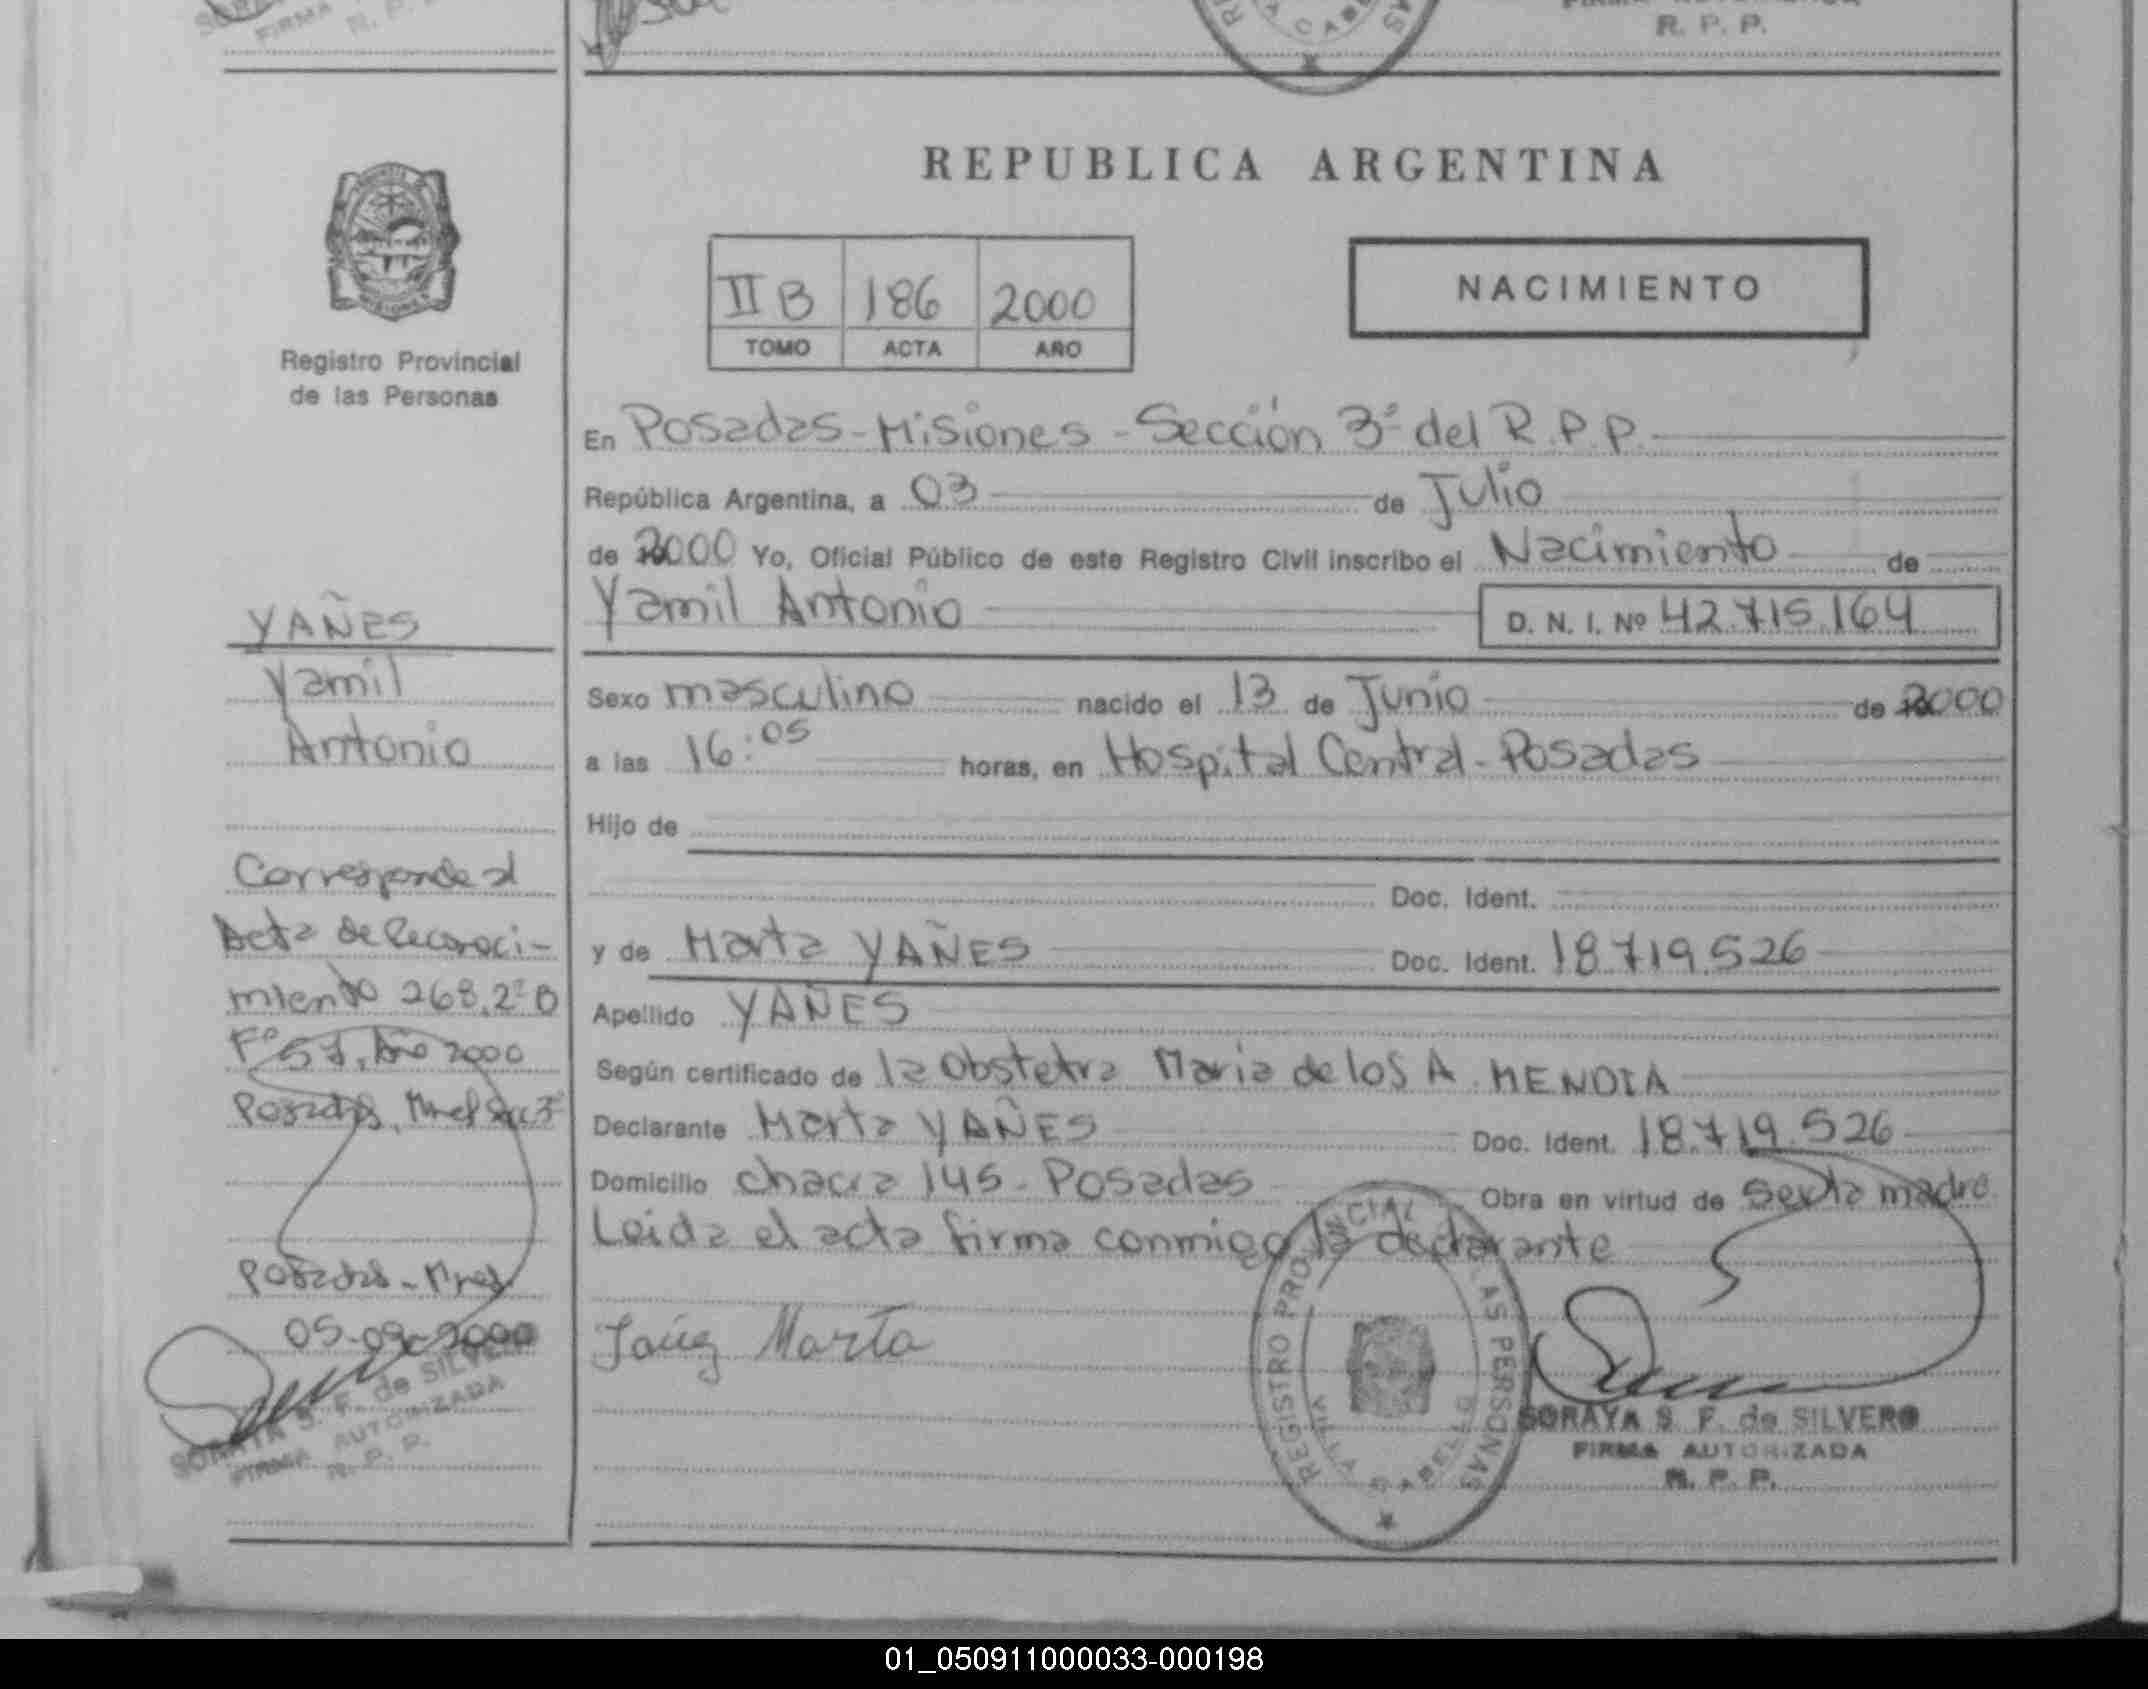 FIRMA
R. P. P.
REPUBLICA ARGENTINA
Registro Provincial
de las Personas
II B 186 2000
TOMO ACTA AÑO
NACIMIENTO
En Posadas - Misiones - Sección 3ª del R.P.P.
República Argentina, a 03 de Julio
de 2000 Yo, Oficial Público de este Registro Civil inscribo el Nacimiento de
Yamil Antonio
D. N. I. Nº 42.715.164
Sexo masculino nacido el 13 de Junio de 2000
a las 16:05 horas, en Hospital Central - Posadas
Hijo de
Doc. Ident.
y de Marta YAÑES Doc. Ident. 18.719.526
Apellido YAÑES
Según certificado de la Obstetra Maria de los A. MENDIA
Declarante Marta YAÑES Doc. Ident. 18.719.526
Domicilio chacra 145 - Posadas Obra en virtud de ser la madre
Leida el acta firma conmigo la declarante
Marta
REGISTRO PROVINCIAL DE LAS PERSONAS
VILLA CABELLO
SORAYA S. F. de SILVERO
FIRMA AUTORIZADA
R. P. P.
YAÑES
Yamil
Antonio
Corresponde al
Acta de Reconoci-
miento 268, 2º B
Fº 57, Año 2000
Posadas, Mnes Sec 3ª
Posadas - Mnes
05-09-2000
SORAYA S. F. de SILVERO
FIRMA AUTORIZADA
R. P. P.
01_050911000033-000198